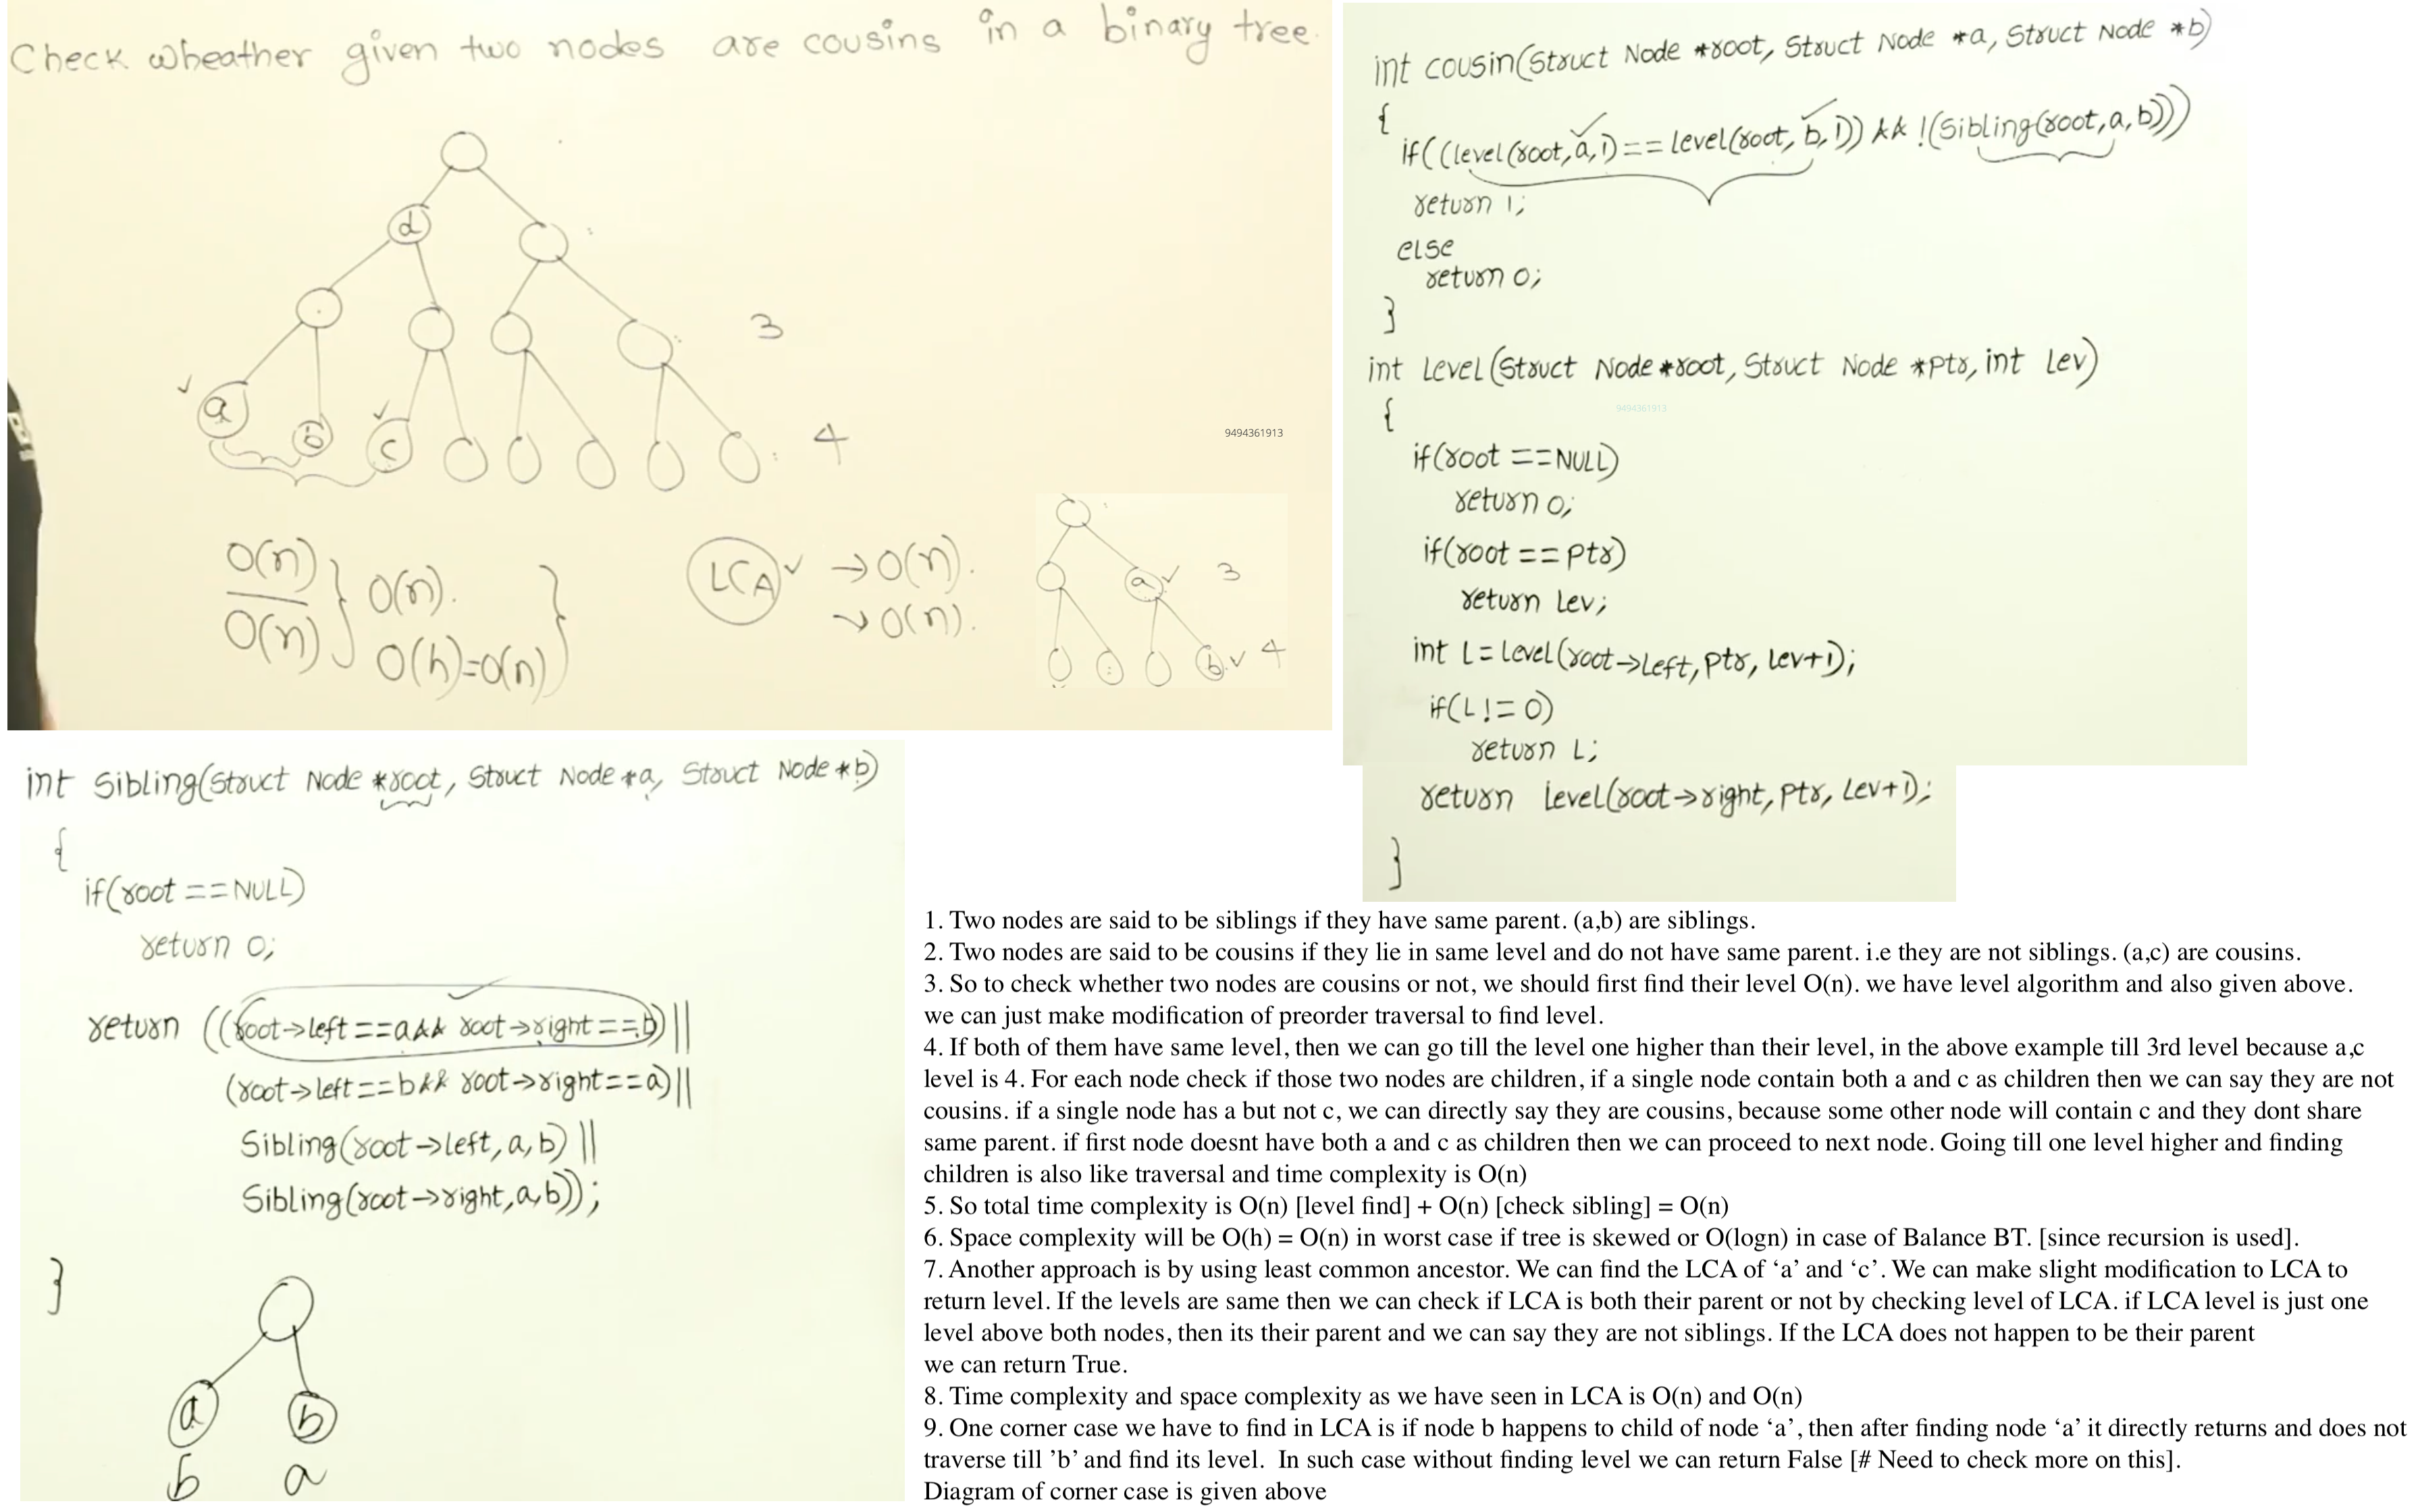 Check wheather given two nodes are cousins in a binary tree.
d
3
a
b
c
4
9494361913
O(n)
O(n)
O(n).
O(h)=O(n)
LCA → O(n).
→ O(n).
a
3
b
4
int cousin(Struct Node *root, Struct Node *a, Struct Node *b)
{
if((level(root,a,1)==level(root,b,1)) && !(Sibling(root,a,b)))
return 1;
else
return 0;
}
int Level(Struct Node *root, Struct Node *ptr, int Lev)
{
9494361913
if(root ==NULL)
return 0;
if(root == ptr)
return Lev;
int L = Level(root->Left, ptr, Lev+1);
if(L != 0)
return L;
return Level(root->right, ptr, Lev+1);
}
int Sibling(Struct Node *root, Struct Node *a, Struct Node *b)
{
if(root ==NULL)
return 0;
return ((root->left==a&& root->right==b)||
(root->left==b&& root->right==a)||
Sibling(root->left,a,b) ||
Sibling(root->right,a,b));
}
a
b
b
a
1. Two nodes are said to be siblings if they have same parent. (a,b) are siblings.
2. Two nodes are said to be cousins if they lie in same level and do not have same parent. i.e they are not siblings. (a,c) are cousins.
3. So to check whether two nodes are cousins or not, we should first find their level O(n). we have level algorithm and also given above.
we can just make modification of preorder traversal to find level.
4. If both of them have same level, then we can go till the level one higher than their level, in the above example till 3rd level because a,c
level is 4. For each node check if those two nodes are children, if a single node contain both a and c as children then we can say they are not
cousins. if a single node has a but not c, we can directly say they are cousins, because some other node will contain c and they dont share
same parent. if first node doesnt have both a and c as children then we can proceed to next node. Going till one level higher and finding
children is also like traversal and time complexity is O(n)
5. So total time complexity is O(n) [level find] + O(n) [check sibling] = O(n)
6. Space complexity will be O(h) = O(n) in worst case if tree is skewed or O(logn) in case of Balance BT. [since recursion is used].
7. Another approach is by using least common ancestor. We can find the LCA of ‘a’ and ‘c’. We can make slight modification to LCA to
return level. If the levels are same then we can check if LCA is both their parent or not by checking level of LCA. if LCA level is just one
level above both nodes, then its their parent and we can say they are not siblings. If the LCA does not happen to be their parent
we can return True.
8. Time complexity and space complexity as we have seen in LCA is O(n) and O(n)
9. One corner case we have to find in LCA is if node b happens to child of node ‘a’, then after finding node ‘a’ it directly returns and does not
traverse till ’b’ and find its level.  In such case without finding level we can return False [# Need to check more on this].
Diagram of corner case is given above